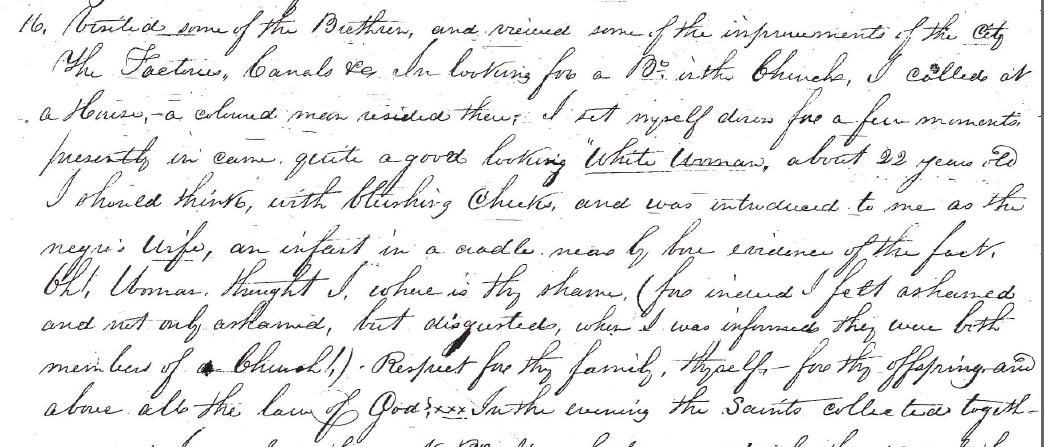 16. Visited some of the Brethren, and viewed some of the improvements of the City
The Factories, Canals &c. In looking for a Br. in the Church, I called at
a House, - a coloured man resided there, I set myself down for a few moments
presently in came quite a good looking "White Woman, about 22 years old
I should think, with blushing Cheeks, and was introduced to me as the
negro's Wife, an infant in a cradle near by bore evidence of the fact.
Oh!, Woman, thought I, where is thy shame, (for indeed I felt ashamed
and not only ashamed, but disgusted, when I was informed they were both
members of a Church!) - Respect for thy family, thyself, - for thy offspring and
above all the law of God? xxx In the evening the Saints collected togeth-